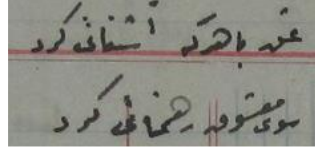 غم با هرکه آشنائی کرد
سوی معشوق رهنمائی کرد